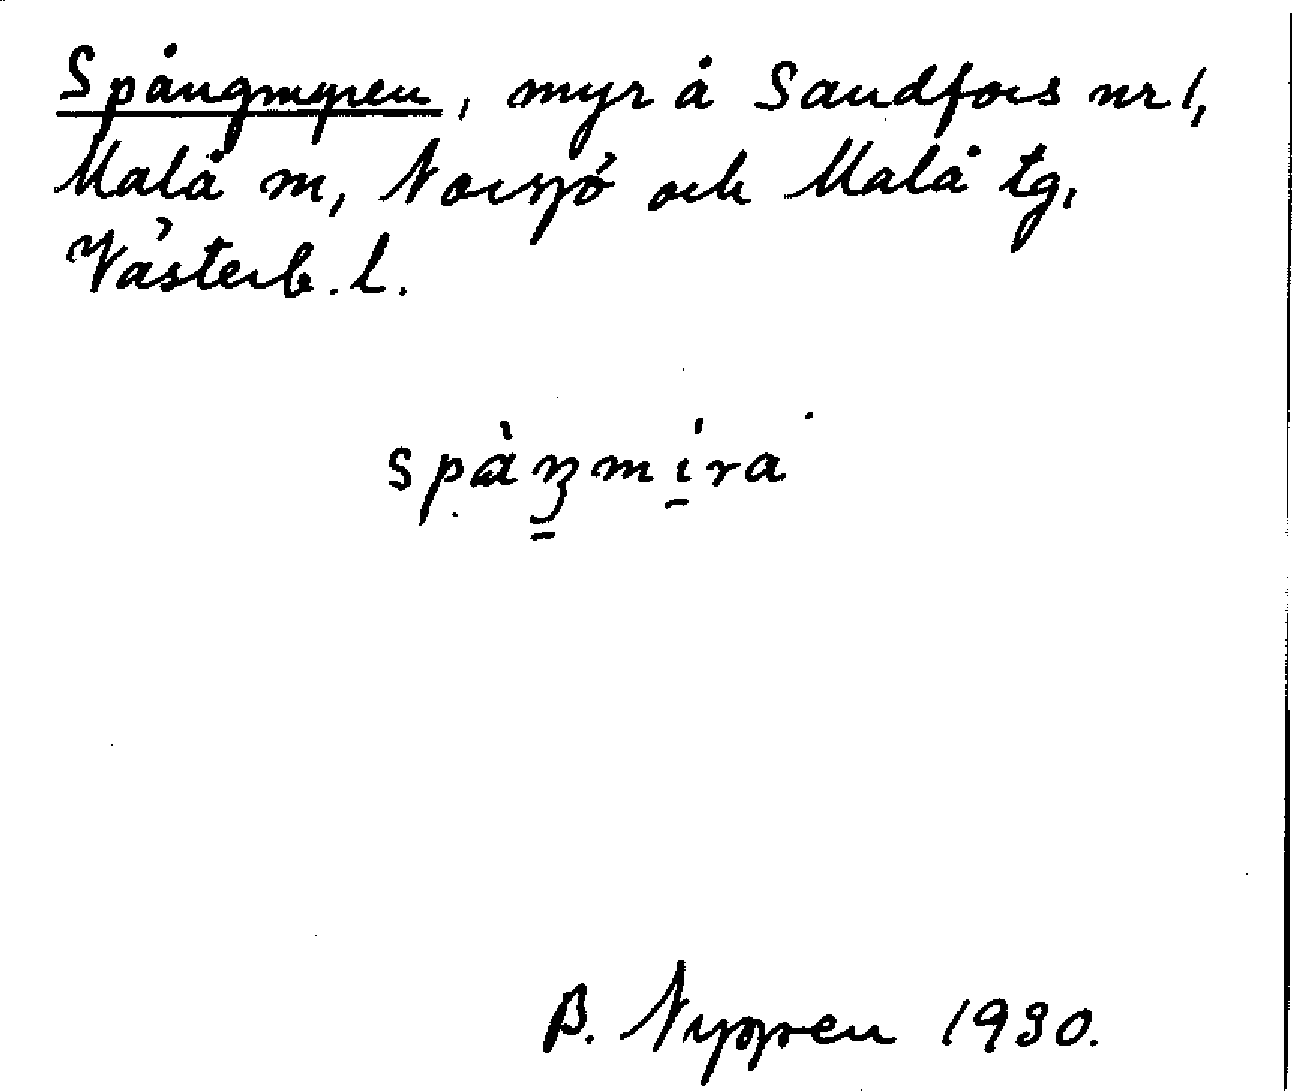 Spångmyren, myr å Sandfors nr 1,
Malå m, Norsjö och Malå tg,
Västerb. l.
spàŋmíra
B. Nyppen 1930.